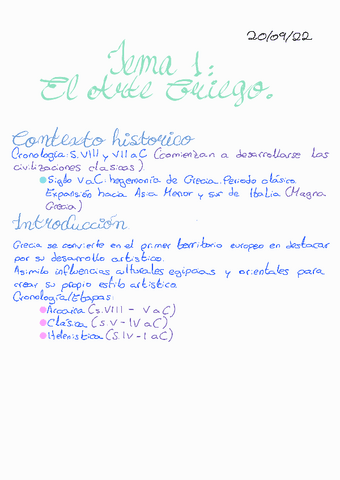 20/09/22
Tema 1:
El Arte Griego.
Contexto historico
Cronología: S.VIII y VII aC (comienzan a desarrollarse las
civilizaciones clasicas)
Siglo V aC: hegemonía de Grecia. Periodo clásico.
Expansión hacia Asia Menor y sur de Italia (Magna
Grecia)
Introducción
Grecia se convierte en el primer territorio europeo en destacar
por su desarrollo artistico.
Asimilo influencias culturales egipcias y orientales para
crear su propio estilo artistico.
Cronología/Etapas:
Arcaica (s.VIII - V aC)
Clásica (S.V - IV aC)
Helenistica (S.IV - I aC)